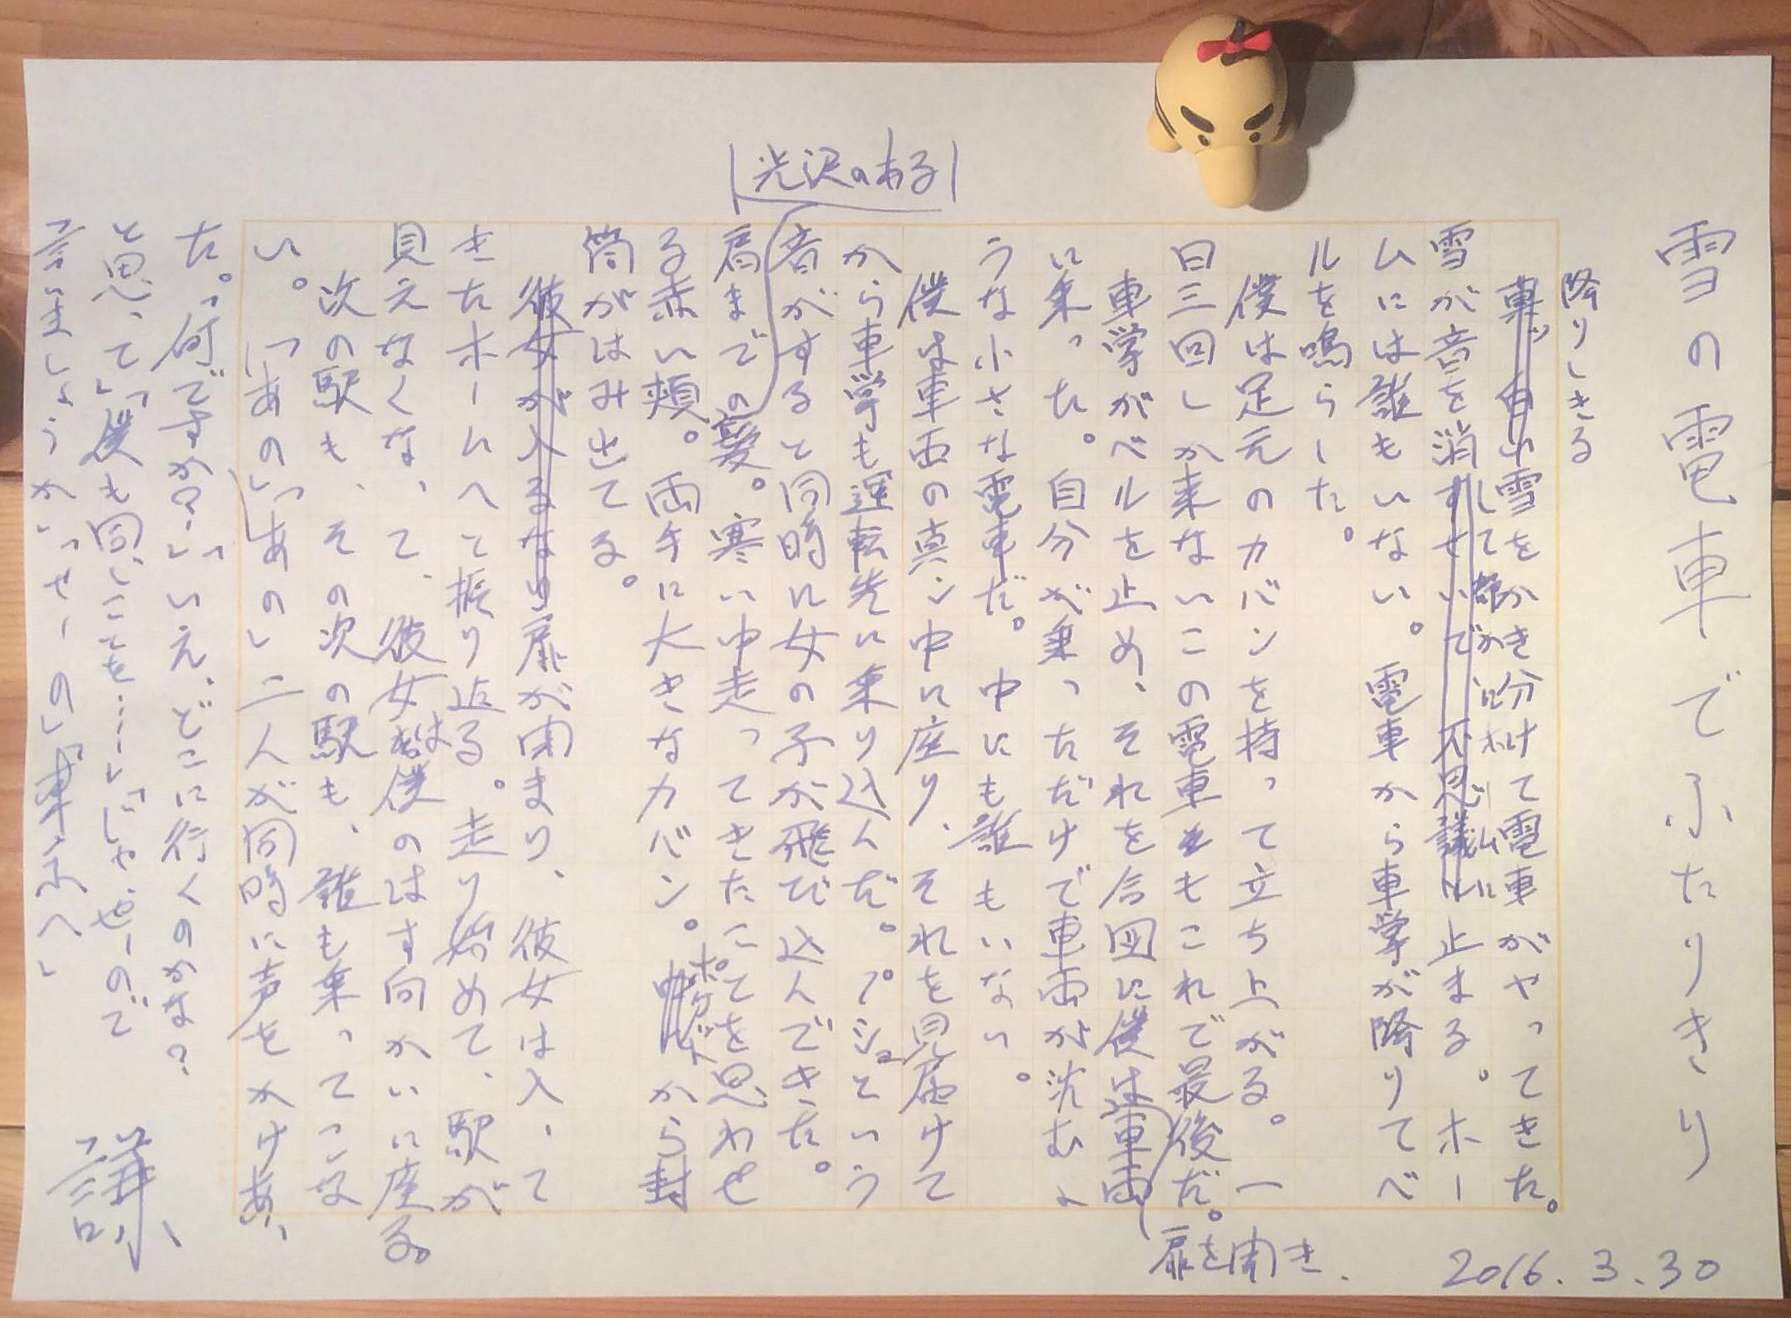 雪の電車でふたりきり
降りしきる
雪をかき分けて電車がやってきた。
して静かにホームに
雪が音を消すせいで、不思議に止まる。ホー
ムには誰もいない。電車から車掌が降りてベ
ルを鳴らした。
僕は足元のカバンを持って立ち上がる。一
日三回しか来ないこの電車もこれで最後だ。
扉を開き、
車掌がベルを止め、それを合図に僕は車両
に乗った。自分が乗っただけで車両が沈むよ
うな小さな電車だ。中にも誰もいない。
僕は車両の真ン中に座り、それを見届けて
から車掌も運転先に乗り込んだ。プシュという
音がすると同時に女の子が飛び込んできた。
光沢のある
肩までの髪。寒い中走ってきたことを思わせ
る赤い頬。両手に大きなカバン。ポケットから封
筒がはみ出てる。
彼女が入るなり扉が閉まり、彼女は入って
きたホームへと振り返る。走り始めて、駅が
見えなくなって、彼女は僕のはす向かいに座る。
次の駅も、その次の次の駅も、誰も乗ってこな
い。「あの」「あの」二人が同時に声をかけあっ
た。「何ですか？」「いえ、どこに行くのかな？
と思って」「僕も同じことを……」「じゃ、せーので
言いましょうか」「せーの」「東京へ」
謙
2016.3.30